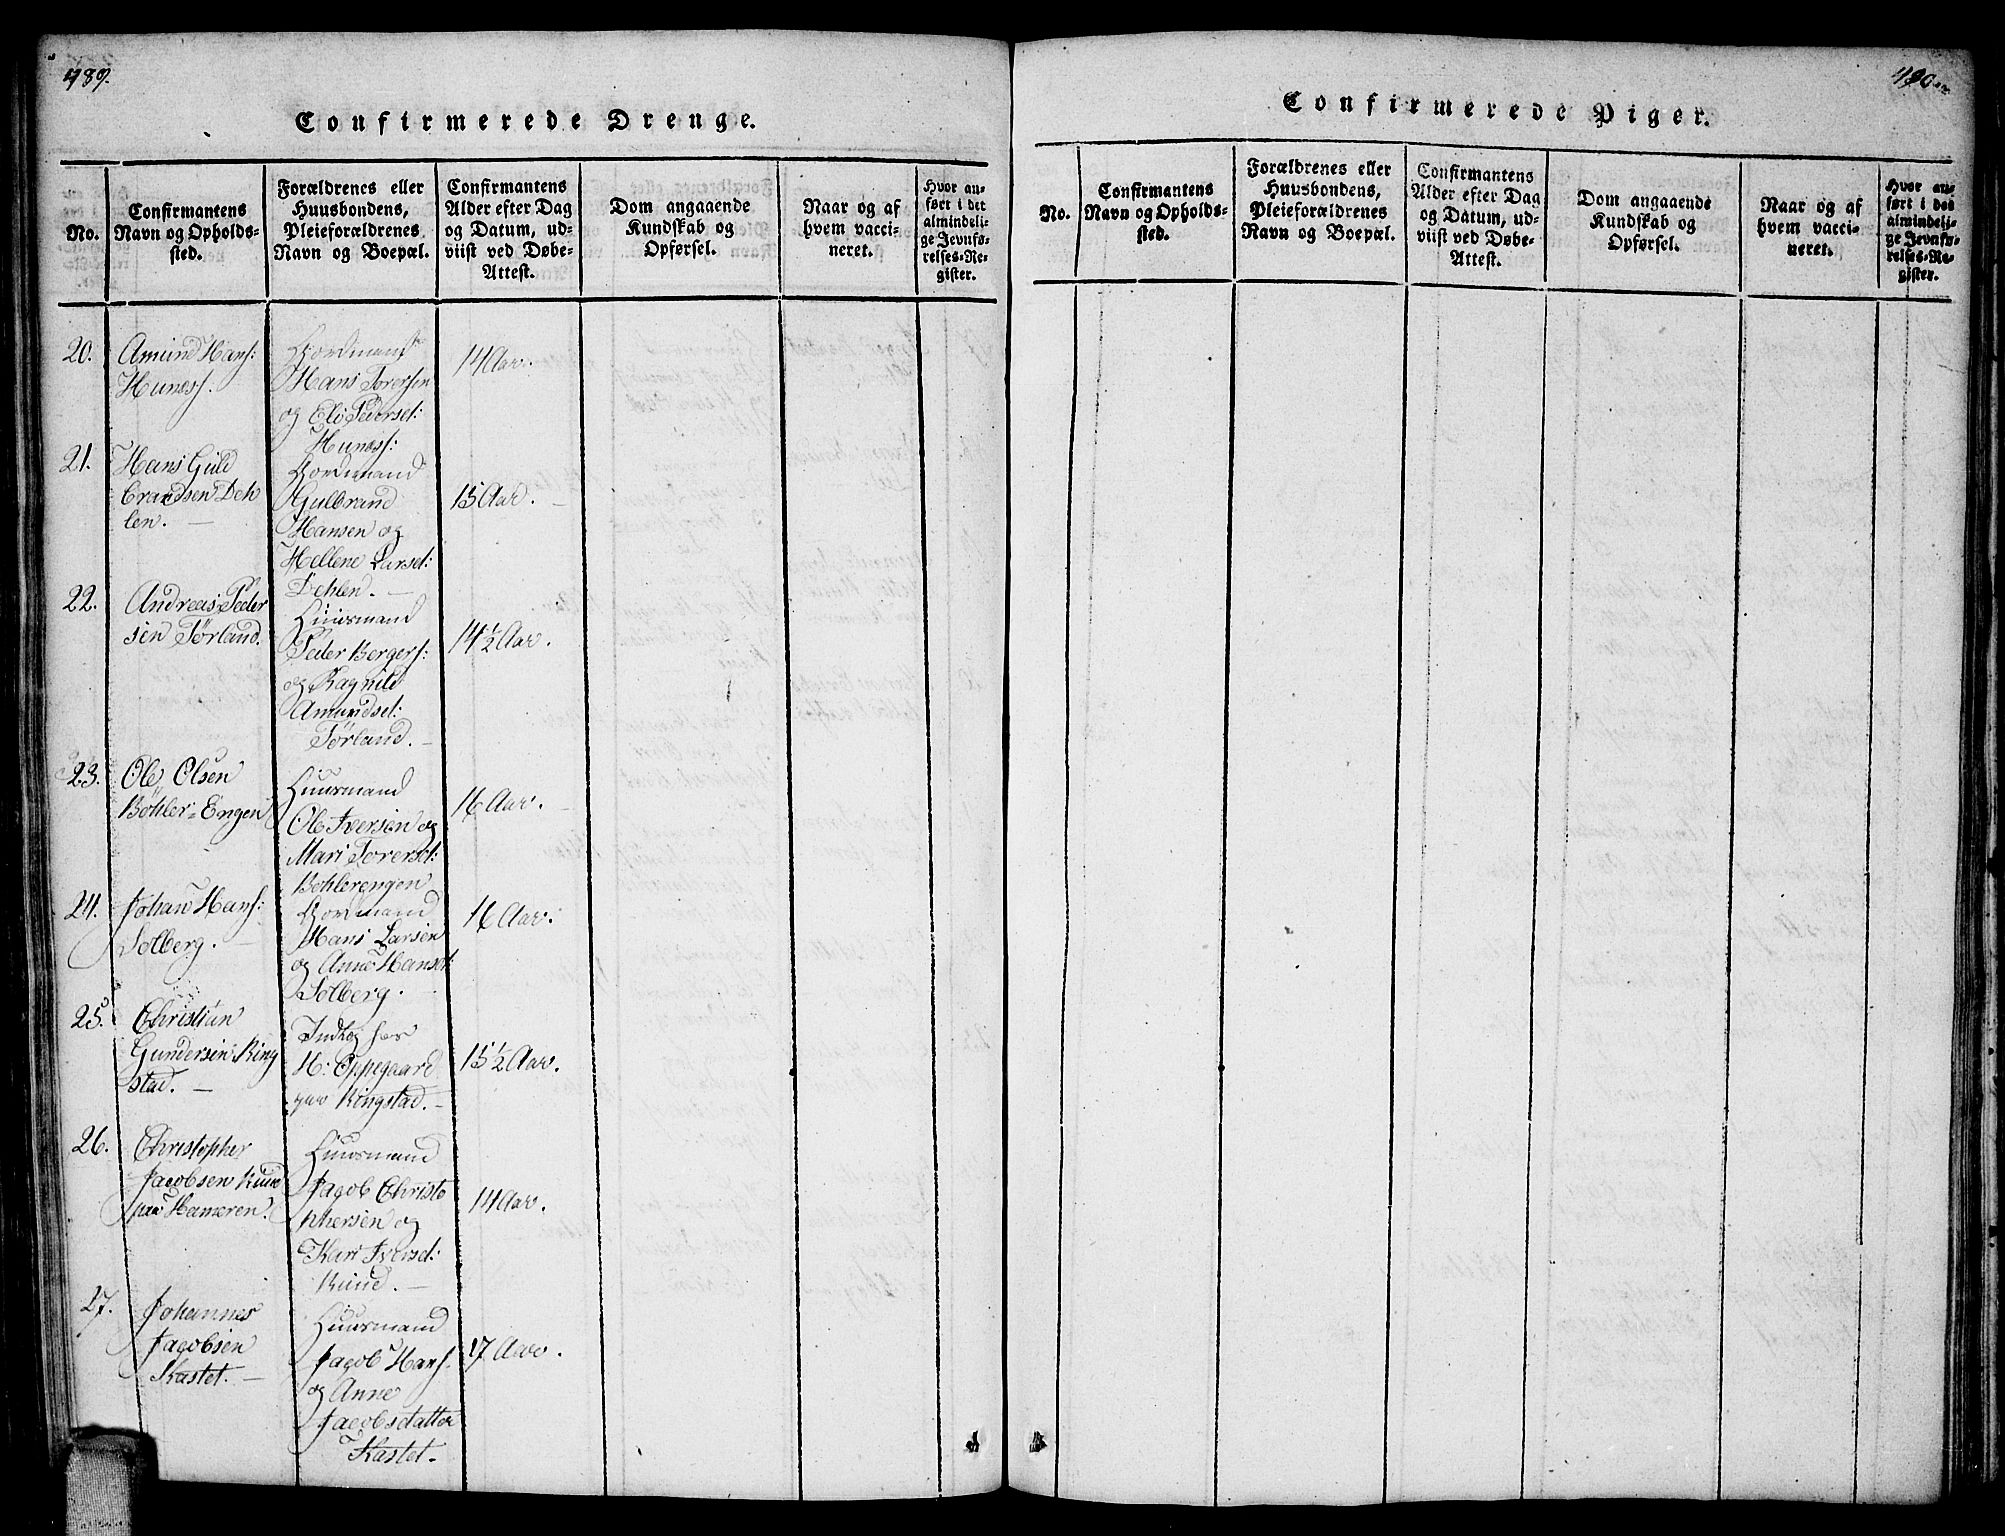 489.
Confirmerede Drenge.
No.
Confirmantens
Navn og Opholds-
sted.
Forældrenes eller
Huusbondens,
Pleieforældrenes
Navn og Boepæl.
Confirmantens
Alder efter Dag
og Datum, ud-
viist ved Døbe-
Attest.
Dom angaaende
Kundskab og
Opførsel.
Naar og af
hvem vacci-
neret.
Hvor an-
ført i det
almindeli-
ge Jevnfø-
relses-Re-
gister.
20.
Amund Hans:
Hunæss.
Gordmand
Hans Torersen
og Eli Pederset:
Hunæss:
14 Aar.
21.
Hans Guld
brandsen Deh
len. —
Gordmand
Gulbrand
Hansen og
Hellene Larset:
Dehlen. —
15 Aar. —
22.
Andreas Peder
sen Torland.
Huusmand
Peder Bergers:
og Ragnild
Amundset:
Torland. —
14 1/2 Aar.
23.
Ole Olsen
Bøhler-Engen
Huusmand
Ole Iversen og
Mari Torerset:
Bøhlerengen
16 Aar. —
24.
Johan Hans:
Solberg. —
Gordmand
Hans Larsen
og Anne Hanset:
Solberg. —
16 Aar.
25.
Christian
Gundersen Ring
stad. —
H: Oppegaard
paa Ringstad. —
15 1/2 Aar.
26.
Christopher
Jacobsen Ruud
paa Hameren.
Huusmand
Jacob Christo
phersen og
Kari Iverset:
Ruud. —
14 Aar.
27.
Johannes
Jacobsen
Kastet. —
Huusmand
Jacob Hans:
og Anne
Jacobsdatter
Kastet. —
17 Aar.
490.
Confirmerede Piger.
No.
Confirmantens
Navn og Opholds-
sted.
Forældrenes eller
Huusbondens,
Pleieforældrenes
Navn og Boepæl.
Confirmantens
Alder efter Dag
og Datum, ud-
viist ved Døbe-
Attest.
Dom angaaende
Kundskab og
Opførsel.
Naar og af
hvem vacci-
neret.
Hvor an-
ført i det
almindeli-
ge Jevnfø-
relses-Re-
gister.